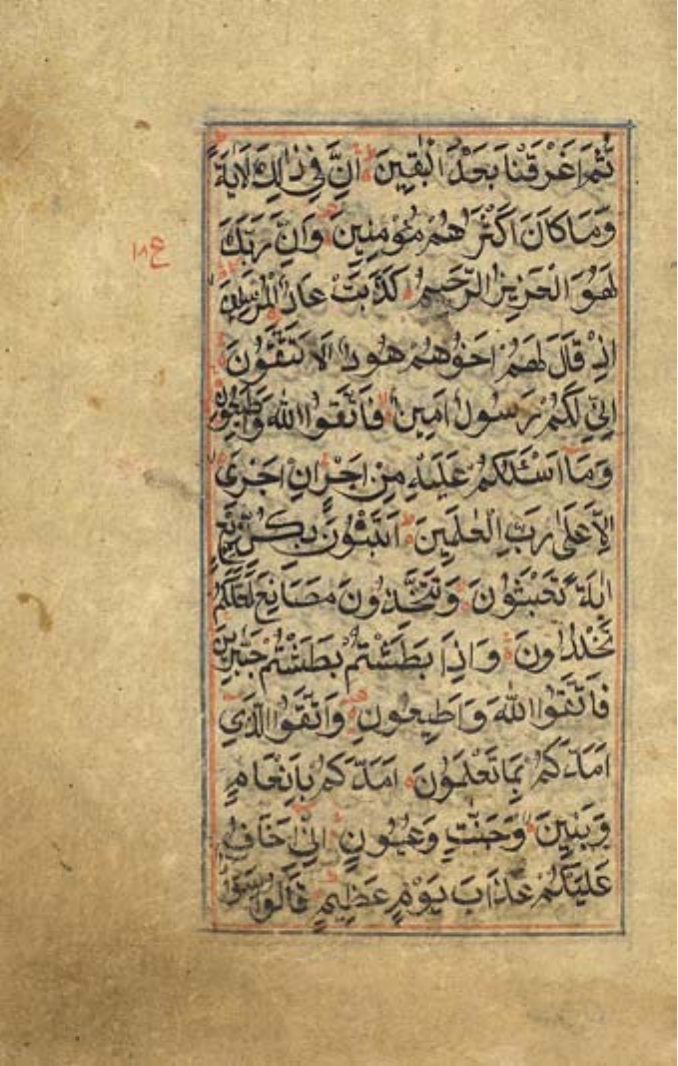 ثُمَّ اَغْرَقْنَا بَعْدُ الْبٰقِينَ اِنَّ فِي ذٰلِكَ لَاٰيَةً
وَمَا كَانَ اَكْثَرُهُمْ مُؤْمِنِينَ وَاِنَّ رَبَّكَ
لَهُوَ الْعَزِيزُ الرَّحِيمُ كَذَّبَتْ عَادُ الْمُرْسَلِينَ
اِذْ قَالَ لَهُمْ اَخُوهُمْ هُودٌ اَلَا تَتَّقُونَ
اِنِّي لَكُمْ رَسُولٌ اَمِينٌ فَاتَّقُوا اللّٰهَ وَاَطِيعُونِ
وَمَا اَسْئَلُكُمْ عَلَيْهِ مِنْ اَجْرٍ اِنْ اَجْرِيَ
اِلَّا عَلٰى رَبِّ الْعٰلَمِينَ اَتَبْنُونَ بِكُلِّ رِيعٍ
اٰيَةً تَعْبَثُونَ وَتَتَّخِذُونَ مَصَانِعَ لَعَلَّكُمْ
تَخْلُدُونَ وَاِذَا بَطَشْتُمْ بَطَشْتُمْ جَبَّارِينَ
فَاتَّقُوا اللّٰهَ وَاَطِيعُونِ وَاتَّقُوا الَّذِي
اَمَدَّكُمْ بِمَا تَعْلَمُونَ اَمَدَّكُمْ بِاَنْعَامٍ
وَبَنِينَ وَجَنّٰتٍ وَعُيُونٍ اِنِّي اَخَافُ
عَلَيْكُمْ عَذَابَ يَوْمٍ عَظِيمٍ قَالُوا سَوَآءٌ